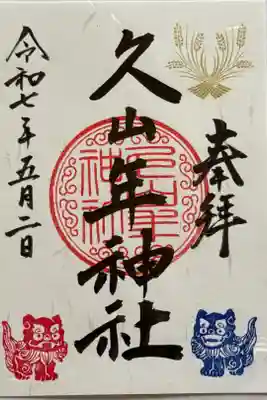 奉拝
久山年神社
令和七年五月二日